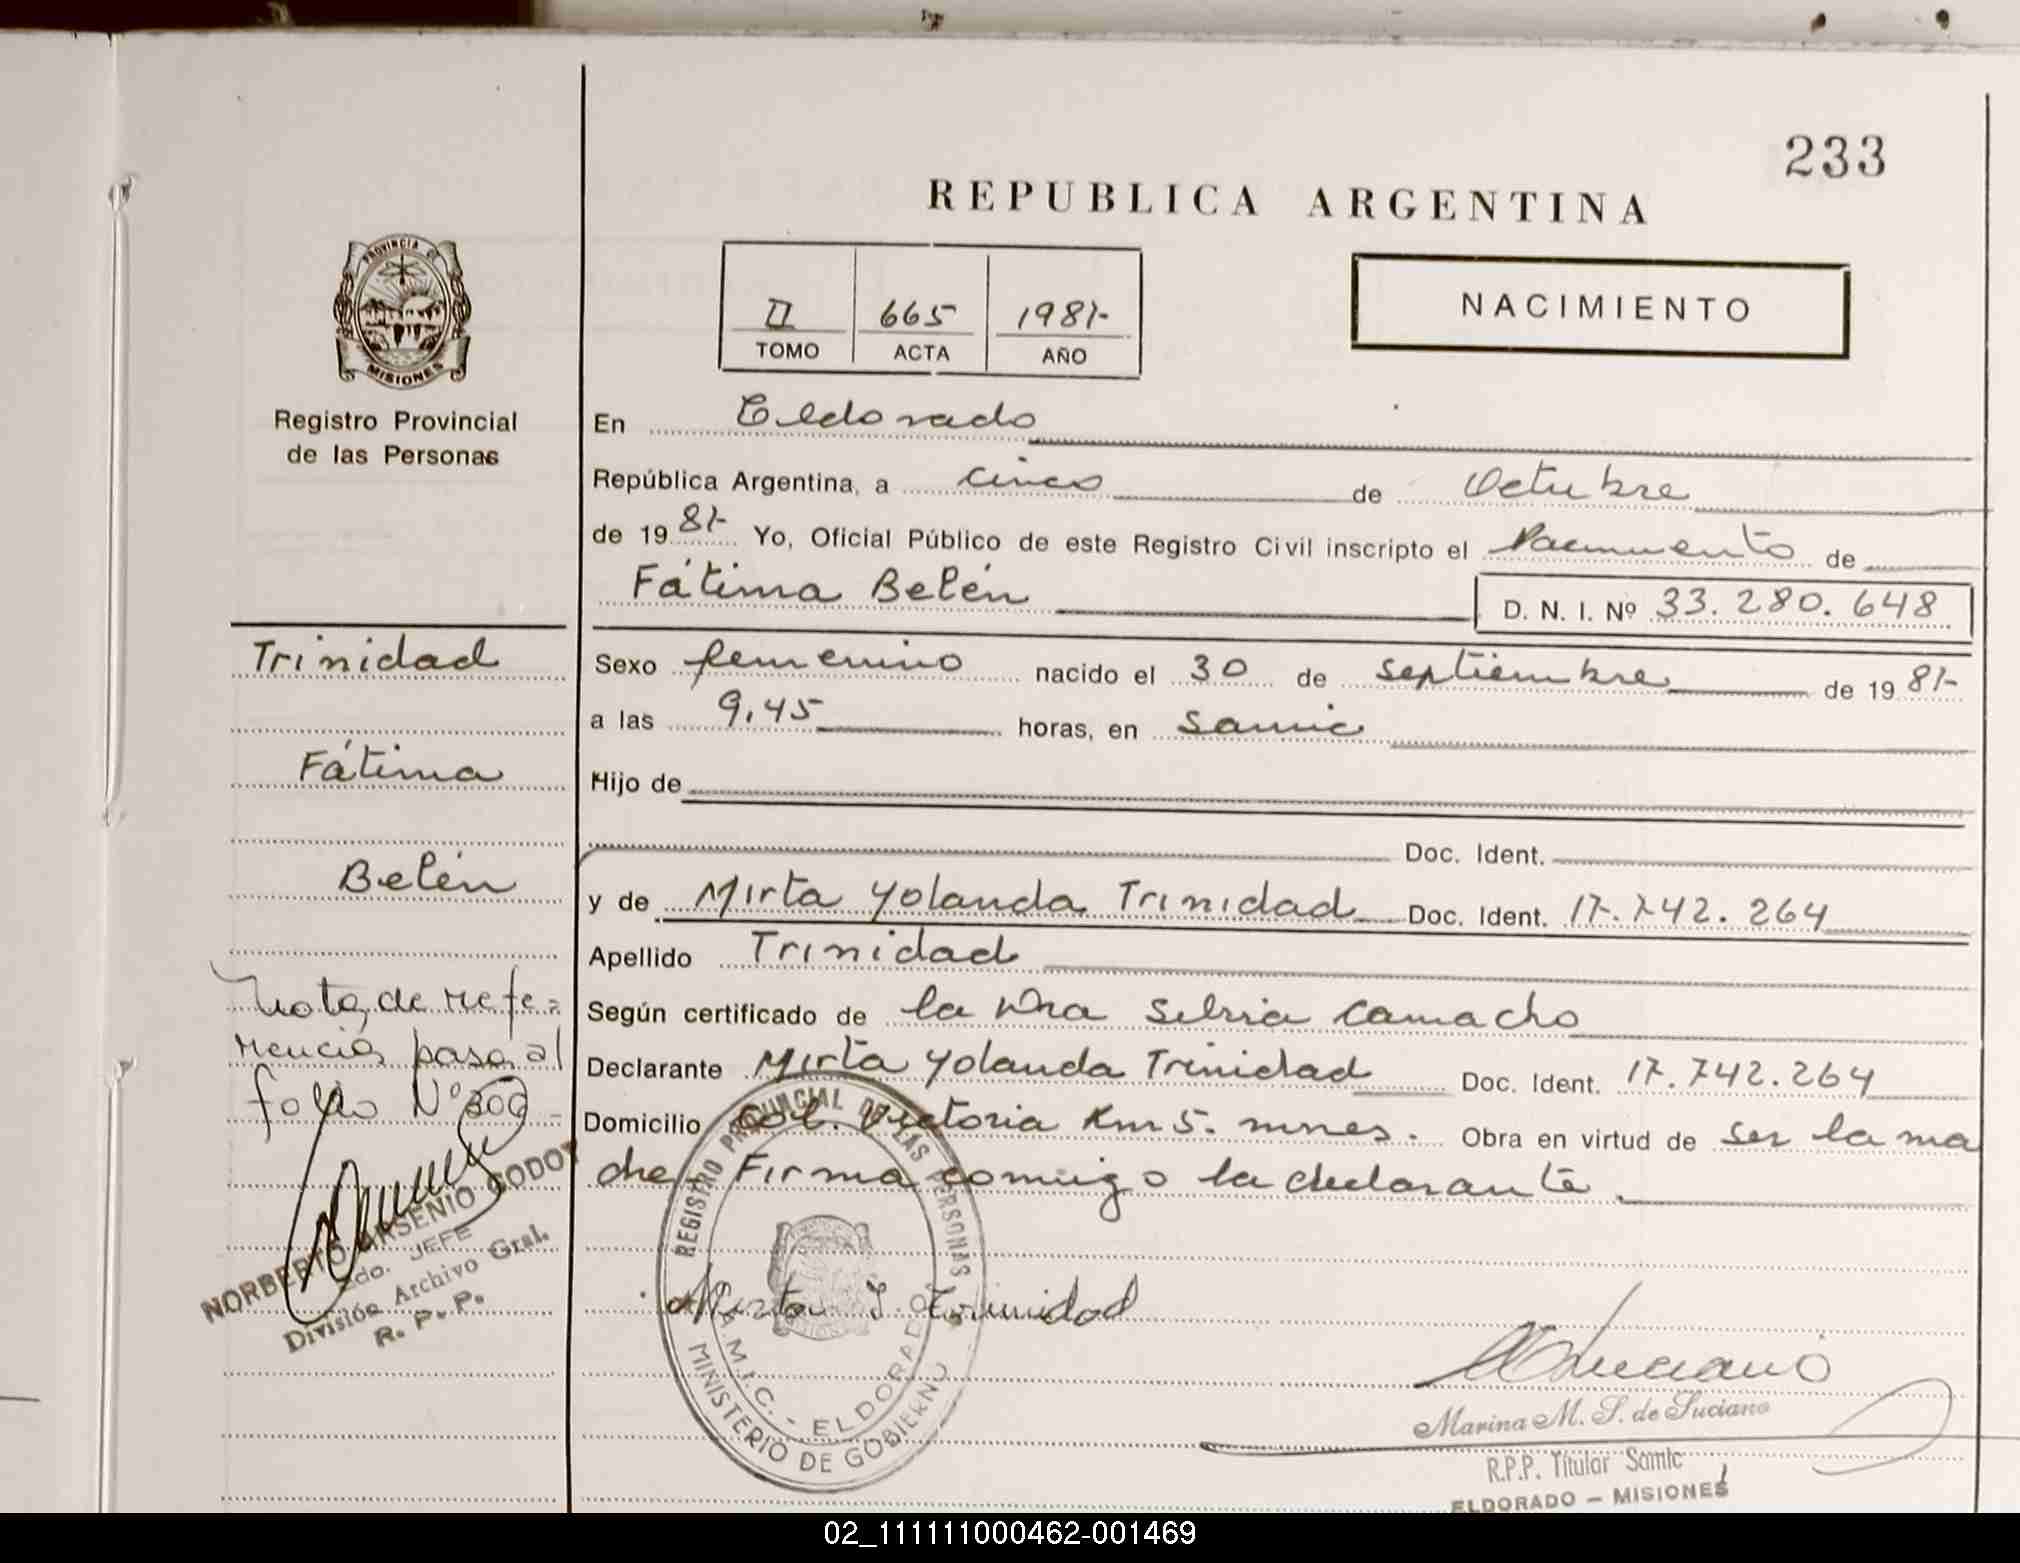 233
REPUBLICA ARGENTINA
PROVINCIA DE
MISIONES
Registro Provincial
de las Personas
II 665 1981-
TOMO ACTA AÑO
NACIMIENTO
En Eldorado
República Argentina, a cinco de Octubre
de 1981- Yo, Oficial Público de este Registro Civil inscripto el Nacimiento de
Fátima Belén D. N. I. Nº 33.280.648
Trinidad
Fátima
Belén
Sexo femenino nacido el 30 de septiembre de 1981-
a las 9,45 horas, en Samic
Hijo de
Doc. Ident.
y de Mirta Yolanda Trinidad Doc. Ident. 17.742.264
Apellido Trinidad
Según certificado de la Dra Silvia Camacho
Declarante Mirta Yolanda Trinidad Doc. Ident. 17.742.264
Domicilio Col. Victoria Km 5. mnes. Obra en virtud de ser la ma
dre Firma conmigo la declarante
Nota de refe=
rencia pasa al
folio Nº 300
NORBERTO ARSENIO GODOY
2do. JEFE
División Archivo Gral.
R. P. P.
REGISTRO PROVINCIAL DE LAS PERSONAS
S.A.M.I.C. - ELDORADO
MINISTERIO DE GOBIERNO
Mirta Y. Trinidad
Marina M. S. de Luciano
R.P.P. Titular Samic
ELDORADO - MISIONES
02_111111000462-001469